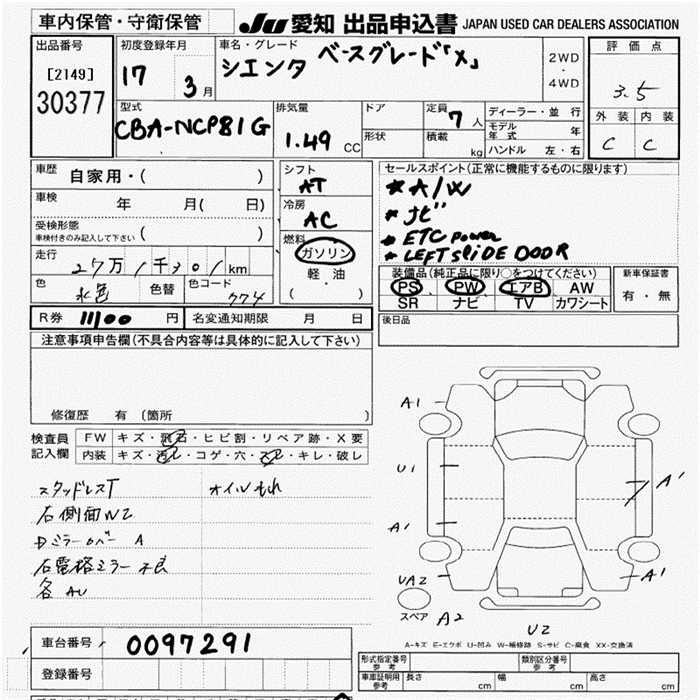 車内保管・守衛保管 JU 愛知 出品申込書 JAPAN USED CAR DEALERS ASSOCIATION
出品番号 [2149] 30377
初度登録年月 17 3月
車名・グレード シエンタ ベースグレード「X」
2WD・4WD
評価点 3.5
外装 内装
C C
型式 CBA-NCP81G
排気量 1.49 CC
ドア 形状
定員 7人
積載 kg
ディーラー・並行
モデル年式 年
ハンドル 左・右
車歴 自家用・( )
車検 年 月( 日)
受検形態 車検付きのみ記入して下さい ( )
走行 27万1千301km
色 水色 色替 色コード 774
シフト AT
冷房 AC
燃料 ガソリン
軽・油
( )
セールスポイント(正常に機能するものに限ります)
* A/W
* ナビ
* ETC power
* LEFT SLIDE DOOR
装備品(純正品に限り○をつけてください)
PS PW エアB AW
SR ナビ TV カワシート
新車保証書 有・無
R券 11100 円 名変通知期限 月 日
後日品
注意事項申告欄(不具合内容等は具体的に記入して下さい)
修復歴 有 (箇所 )
検査員記入欄
FW キズ・飛石・ヒビ割・リペア跡・X要
内装 キズ・汚レ・コゲ・穴・スレ・キレ・破レ
スタッドレスT オイルもれ
右側面W2
Dミラーカバー A
右電格ミラー不良
各AU
A1
U1
A1
UA2
スペア A2
U2
A1
A1
A-キズ E-エクボ U-凹み W-補修跡 S-サビ C-腐食 XX-交換済
車台番号 0097291
登録番号
形式指定番号 参考 類別区分番号 参考
車庫証明用 参考 長さ cm 幅 cm 高さ cm